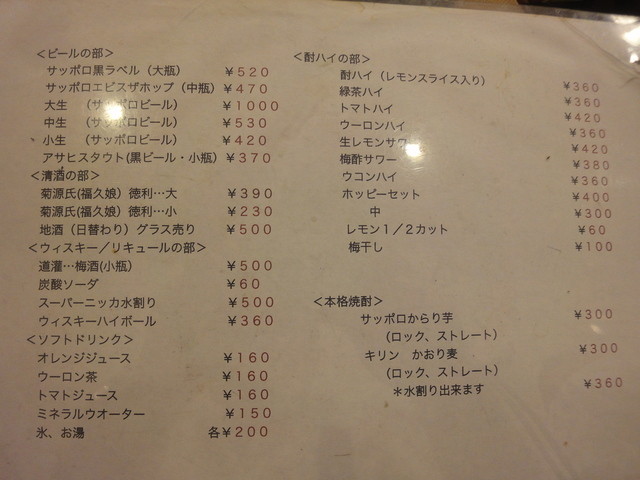 ＜ビールの部＞
サッポロ黒ラベル（大瓶） ￥５２０
サッポロエビスザホップ（中瓶） ￥４７０
大生 （サッポロビール） ￥１０００
中生 （サッポロビール） ￥５３０
小生 （サッポロビール） ￥４２０
アサヒスタウト(黒ビール・小瓶) ￥３７０
＜清酒の部＞
菊源氏(福久娘）徳利…大 ￥３９０
菊源氏(福久娘）徳利…小 ￥２３０
地酒（日替わり）グラス売り ￥５００
＜ウィスキー／リキュールの部＞
道灌…梅酒(小瓶） ￥５００
炭酸ソーダ ￥６０
スーパーニッカ水割り ￥５００
ウィスキーハイボール ￥３６０
＜ソフトドリンク＞
オレンジジュース ￥１６０
ウーロン茶 ￥１６０
トマトジュース ￥１６０
ミネラルウオーター ￥１５０
氷、お湯 各￥２００
＜酎ハイの部＞
酎ハイ（レモンスライス入り） ￥３６０
緑茶ハイ ￥３６０
トマトハイ ￥４２０
ウーロンハイ ￥３６０
生レモンサワー ￥４２０
梅酢サワー ￥３８０
ウコンハイ ￥３６０
ホッピーセット ￥４００
中 ￥３００
レモン１／２カット ￥６０
梅干し ￥１００
＜本格焼酎＞
サッポロからり芋 ￥３００
（ロック、ストレート）
キリン かおり麦 ￥３００
（ロック、ストレート）
＊水割り出来ます ￥３６０